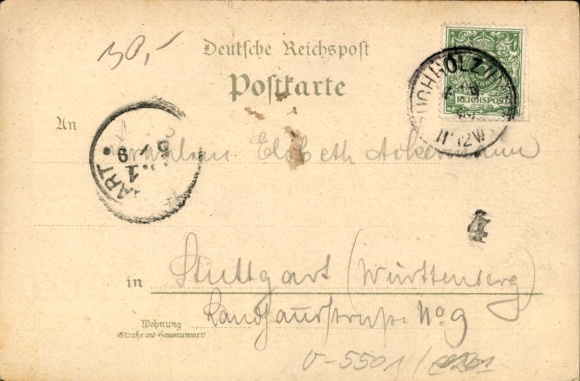 30,-
Deutsche Reichspost
Postkarte
BUCHHOLZ
REICHSPOST
11-12V
An Fräulein Elsbeth Ackermann
4
in Stuttgart (Württenberg)
Wohnung
(Straße und Hausnummer)
Landhausstraße No 9
V-5501/